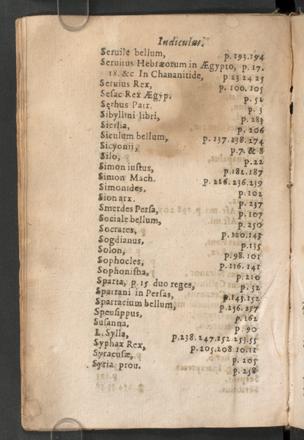 Indiculus.
Seruile bellum, p. 193.194
Seruitus Hebræorum in Ægypto, p. 17.
18. &c. In Chananitide, p 23 24 25
Seruius Rex, p. 100. 105
Sesac Rex Ægyp. p. 52
Sethus Patr. p. 5
Sibyllini libri, p. 283
Sicilia, p. 206
Siculum bellum, p. 237. 238. 274
Sicyonii, p. 7. & 8
Silo, p. 22
Simon iustus, p. 182. 187
Simon Mach. p. 226. 236. 239
Simonides, p. 102
Sion arx. p. 237
Smerdes Persa, p. 107
Sociale bellum, p. 250
Socrates, p. 120. 143
Sogdianus, p. 135
Solon, p. 98. 101
Sophocles, p. 116. 141
Sophonisba, p. 210
Sparta, p. 15 duo reges, p. 52
Spartani in Persas, p. 145. 152
Spartacium bellum, p. 256. 257
Speusippus, p. 162
Susanna, p. 90
L. Sylla, p. 238. 247. 252 253. 55
Syphax Rex, p. 205. 208 10. 11
Syracusæ, p. 205
Syria prou. p. 258